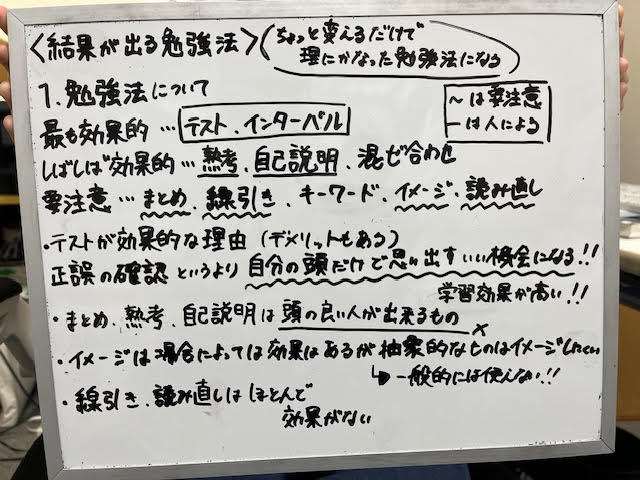 〈結果が出る勉強法〉
ちょっと変えるだけで
理にかなった勉強法になる
1.勉強法について
〜は要注意
ーは人による
最も効果的…テスト、インターバル
しばしば効果的…熟考、自己説明、混ぜ合わせ
要注意…まとめ、線引き、キーワード、イメージ、読み直し
・テストが効果的な理由(デメリットもある)
正誤の確認というより自分の頭だけで思い出すいい機会になる!!
学習効果が高い!!
・まとめ、熟考、自己説明は頭の良い人が出来るもの
×
・イメージは場合によっては効果はあるが抽象的なものはイメージしにくい
↳一般的には使えない!!
・線引き、読み直しはほとんど
効果がない